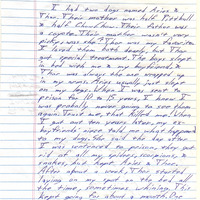 I had two dogs named Aries &
Thor. Their mother was half Pitbull
half Chow Chow. Their father was
a coyote. Their mother wasn't very
picky was she? Thor was my favorite.
I loved them both dearly, but Thor
got special treatment. The dogs slept
in bed with me & my boyfriend &
Thor was always the one wrapped up
in my arms. Aries usually just slept
on my legs. When I was sent to
prison for 10 to 15 years, I knew I
was probably never going to see them
again. Trust me, that killed me! When
I got out ten years later, my ex-
boyfriend's told me what happened
to my dogs. She said the day after
I was sentenced to prison, they got
rid of all my spiders, scorpions &
snakes, but kept Aries & Thor.
After about a week, Thor started
laying on my spot on the bed all
the time, sometimes whining. This
kept going for about a month. One